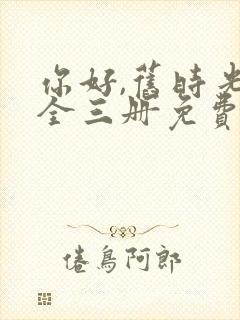 你好,舊時光
全三册免費
倦鳥阿郎